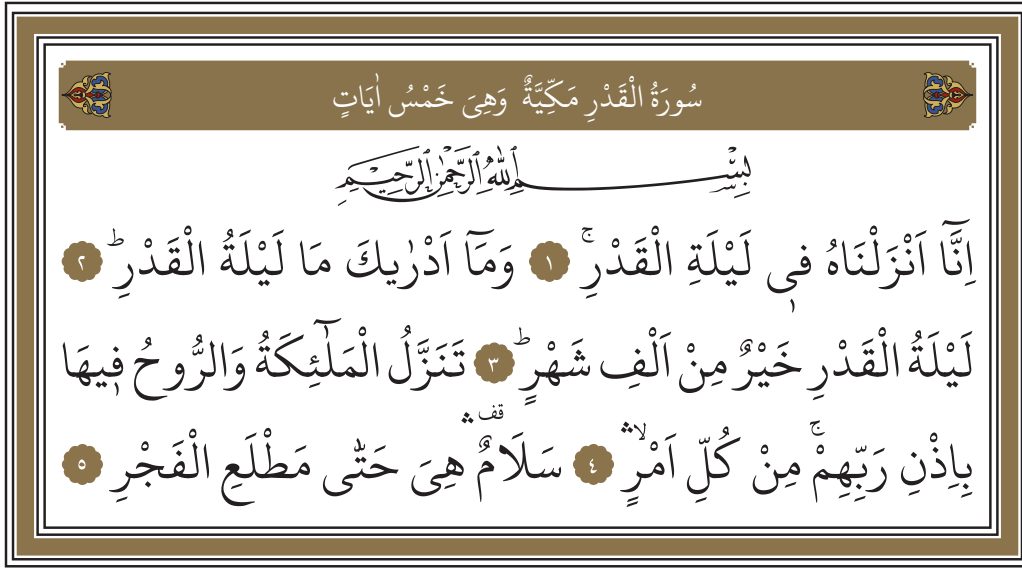 سُورَةُ الْقَدْرِ مَكِّيَّةٌ وَهِىَ خَمْسُ اٰيَاتٍ
بِسْمِ اللّٰهِ الرَّحْمٰنِ الرَّحِيمِ
اِنَّٓا اَنْزَلْنَاهُ فٖى لَيْلَةِ الْقَدْرِۚ ﴿١﴾ وَمَٓا اَدْرٰيكَ مَا لَيْلَةُ الْقَدْرِؕ ﴿٢﴾
لَيْلَةُ الْقَدْرِ خَيْرٌ مِنْ اَلْفِ شَهْرٍؕ ﴿٣﴾ تَنَزَّلُ الْمَلٰٓئِكَةُ وَالرُّوحُ فٖيهَا
بِاِذْنِ رَبِّهِمْۚ مِنْ كُلِّ اَمْرٍۙۛ ﴿٤﴾ سَلَامٌ۠ۛ قف هِىَ حَتّٰى مَطْلَعِ الْفَجْرِ ﴿٥﴾